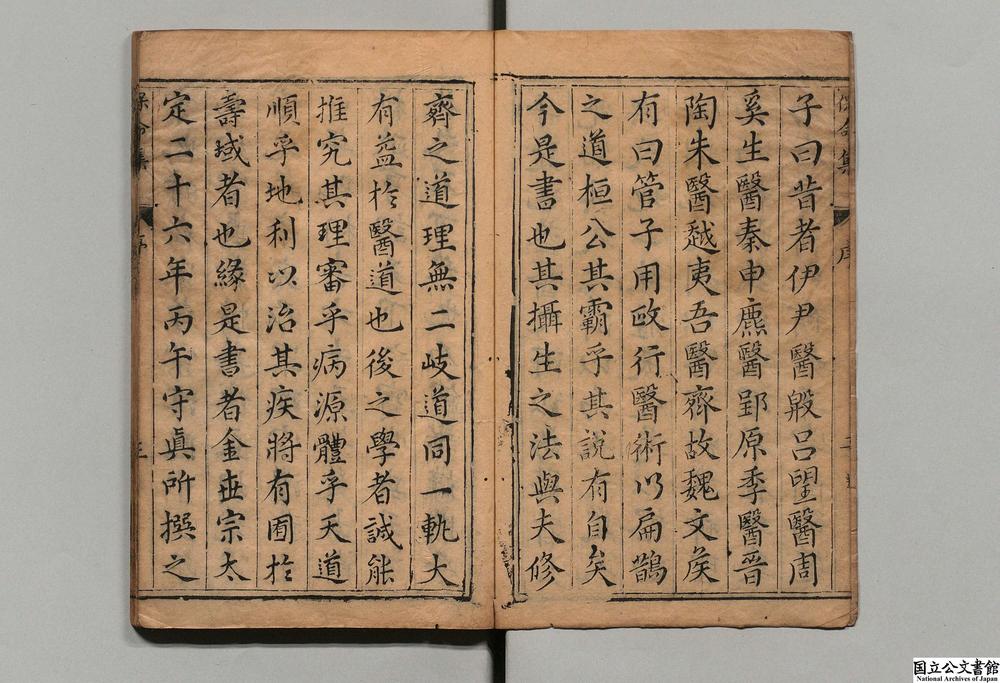 子曰昔者伊尹醫殷呂望醫周
奚生醫秦申麃醫郢原季醫晉
陶朱醫越夷吾醫齊故魏文矦
有曰管子用政行醫術以扁鵲
之道桓公其霸乎其說有自矣
今是書也其攝生之法與夫修
齊之道理無二岐道同一軌大
有益於醫道也後之學者誠能
推究其理審乎病源體乎天道
順乎地利以治其疾將有囿於
壽域者也緣是書者金世宗太
定二十六年丙午守眞所撰之
保命集
序
保命集
国立公文書館
National Archives of Japan